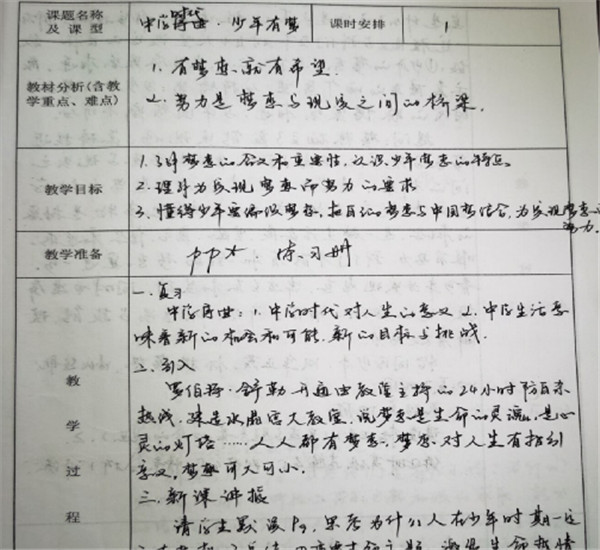 课题名称
及 课 型
中学序曲·少年有梦
时代
课时安排
1
教材分析(含教
学重点、难点)
1. 有梦想就有希望.
2. 努力是梦想与现实之间的桥梁.
教学目标
1. 了解梦想的含义和重要性,认识少年梦想的特点。
2. 理解为实现梦想而努力的要求
3. 懂得少年要编织梦想,把自己的梦想与中国梦结合,为实现梦想
努力.
教学准备
ppt 练习册
教
学
过
程
一. 复习
中学序曲: 1. 中学时代对人生的意义 2. 中学生活意
味着新的机会和可能,新的目标与挑战.
二. 引入
罗伯特·舒勒 由教堂主持的24小时防自杀
热线. 建造水晶宫大教堂. 说梦想是生命的灵魂,是心
灵的灯塔……人人都有梦想. 梦想对人生有指引
意义, 梦想可大可小.
三. 新课讲授
请学生默读P9, 思考为什么人在少年时期一定